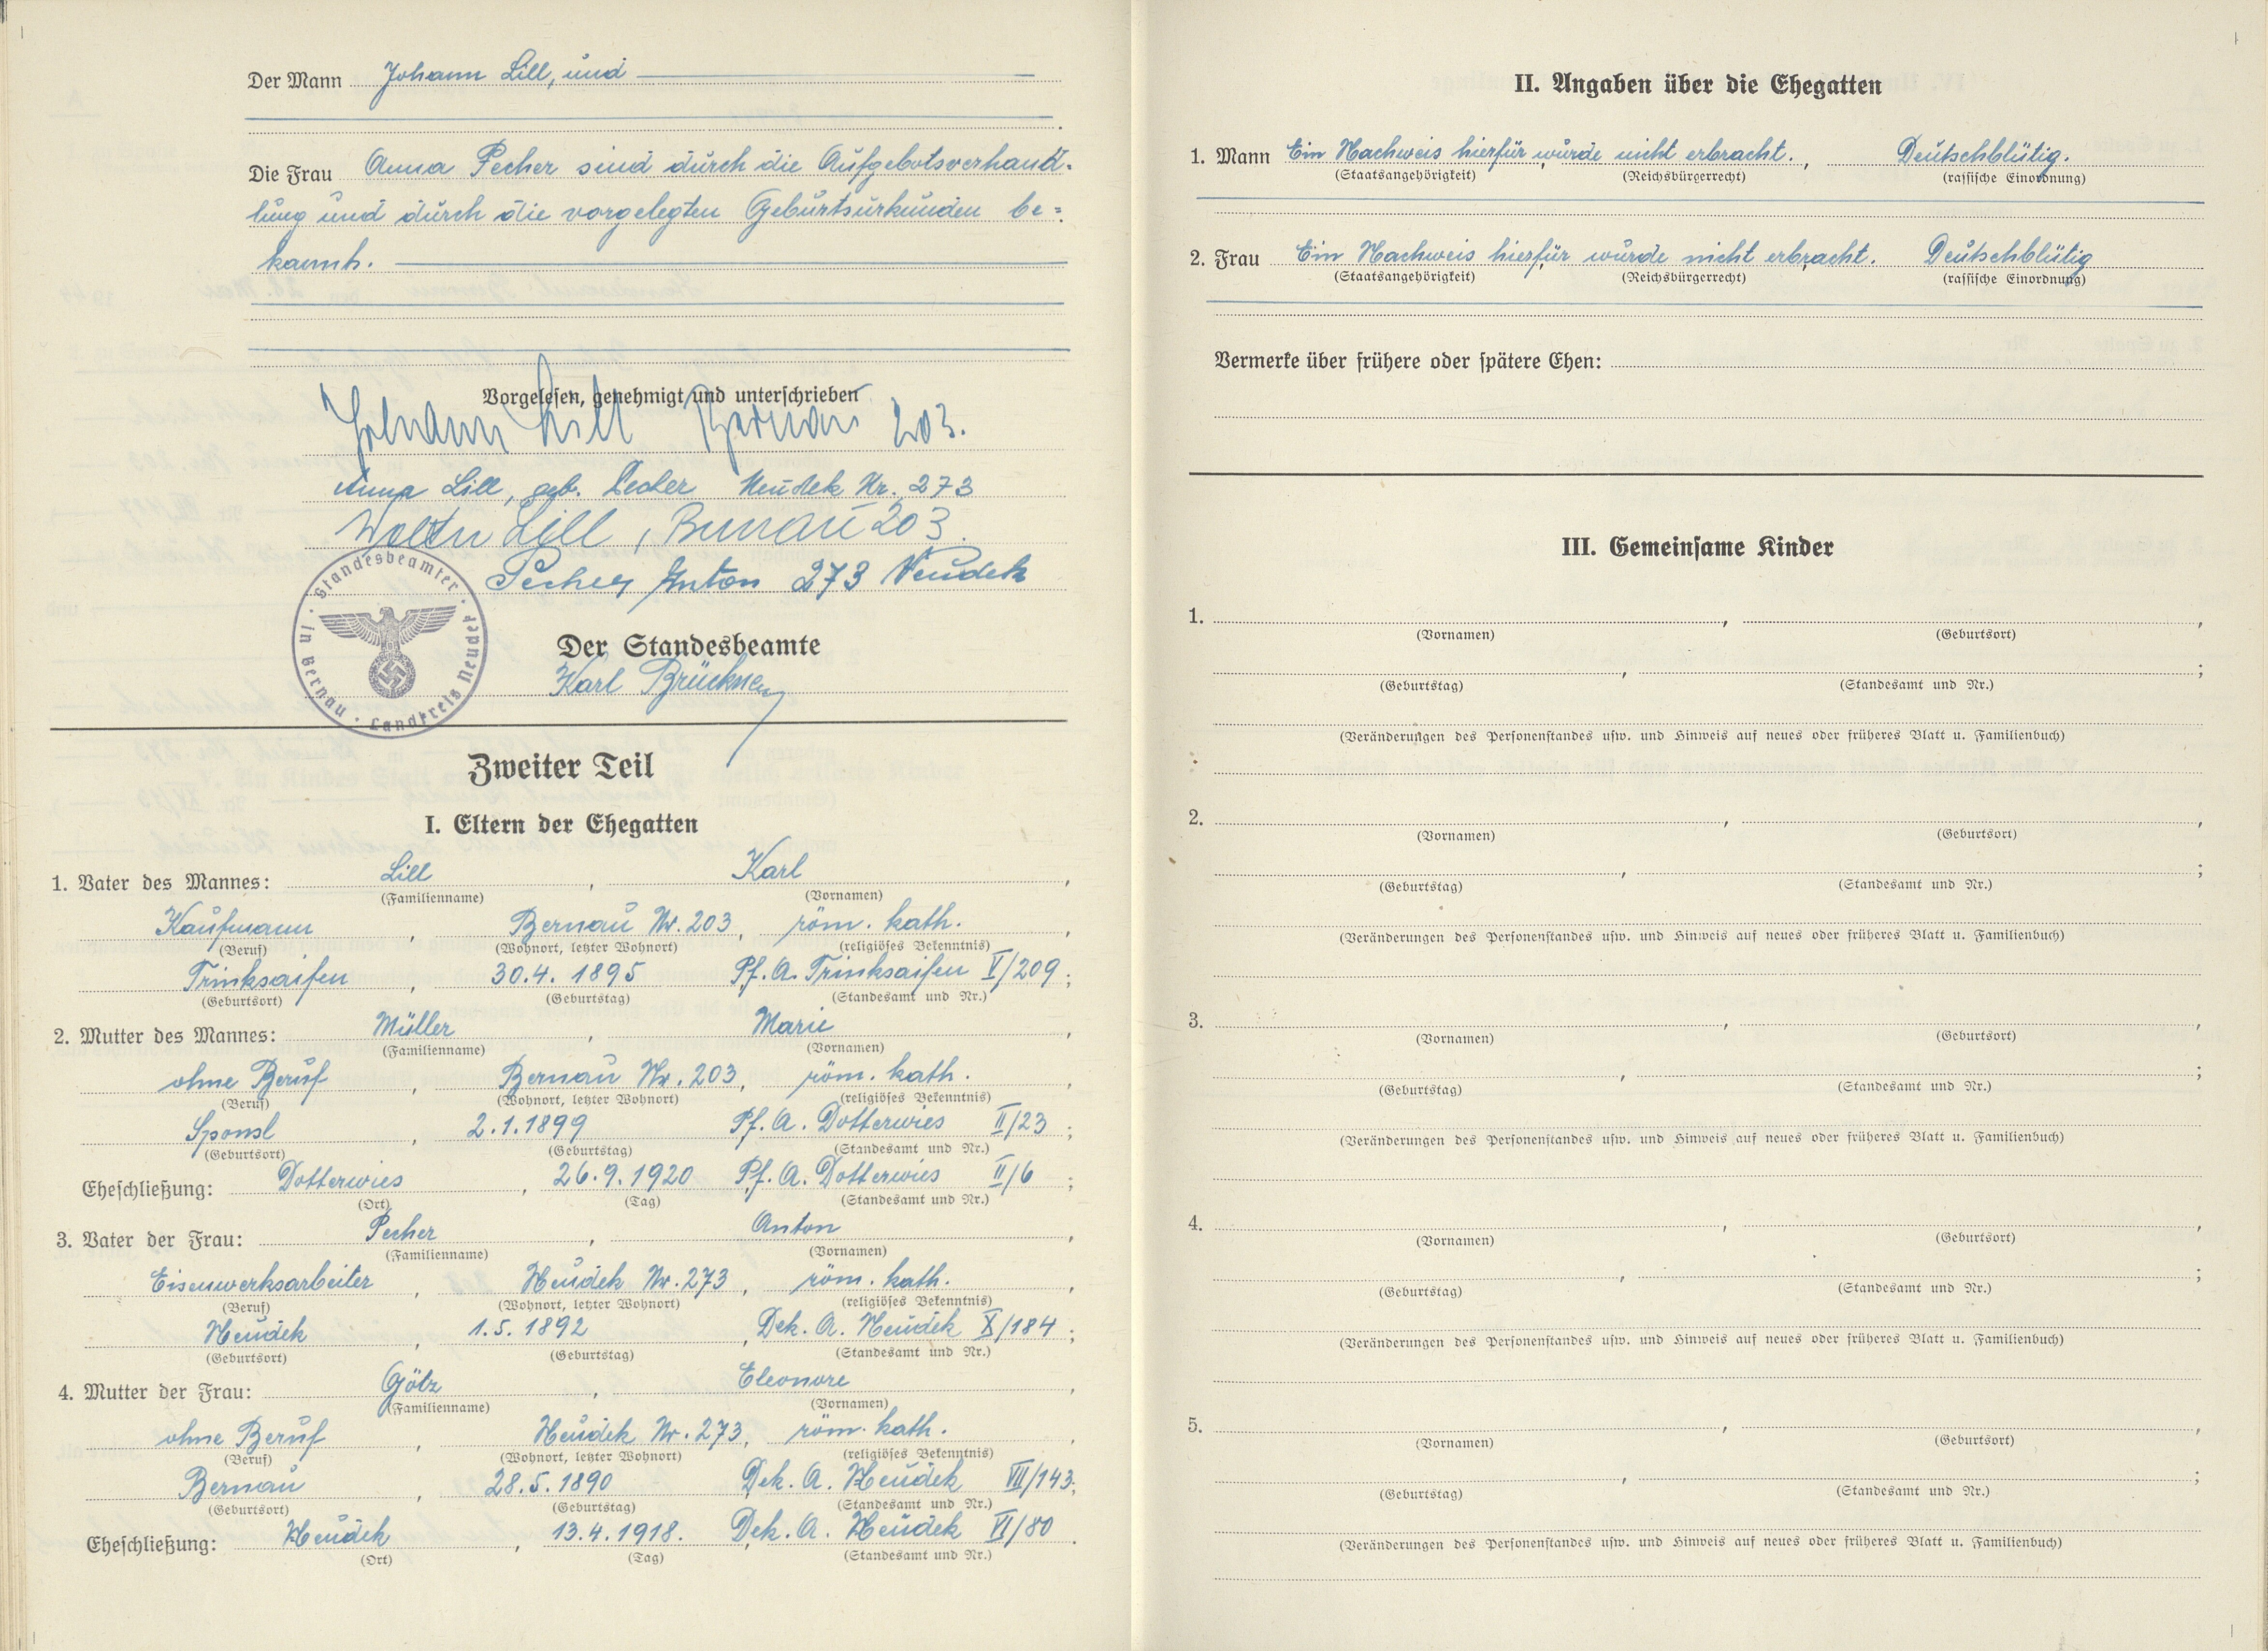 Der Mann Johann Lill, und
Die Frau Anna Pecher sind durch die Aufgebotsverhand-
lung und durch die vorgelegten Geburtsurkunden be=
kannt.
Vorgelesen, genehmigt und unterschrieben
Johann Lill Bernau 203.
Anna Lill, geb. Pecher Neudek Nr. 273
Walter Lill, Bernau 203.
Pecher Anton 273 Neudek
Standesbeamter · in Bernau · Landkreis Neudek ·
Der Standesbeamte
Karl Brückner
Zweiter Teil
I. Eltern der Ehegatten
1. Vater des Mannes: Lill, Karl,
(Familienname) (Vornamen)
Kaufmann, Bernau Nr. 203, röm. kath.,
(Beruf) (Wohnort, letzter Wohnort) (religiöses Bekenntnis)
Trinksaifen, 30.4. 1895 Pf. A. Trinksaifen V/209;
(Geburtsort) (Geburtstag) (Standesamt und Nr.)
2. Mutter des Mannes: Müller, Marie,
(Familienname) (Vornamen)
ohne Beruf, Bernau Nr. 203, röm. kath.,
(Beruf) (Wohnort, letzter Wohnort) (religiöses Bekenntnis)
Sponsl, 2.1.1899 Pf. A. Dotterwies II/23;
(Geburtsort) (Geburtstag) (Standesamt und Nr.)
Eheschließung: Dotterwies, 26.9.1920 Pf. A. Dotterwies II/6;
(Ort) (Tag) (Standesamt und Nr.)
3. Vater der Frau: Pecher, Anton,
(Familienname) (Vornamen)
Eisenwerksarbeiter, Neudek Nr. 273, röm. kath.,
(Beruf) (Wohnort, letzter Wohnort) (religiöses Bekenntnis)
Neudek, 1.5. 1892, Dek. A. Neudek X/184;
(Geburtsort) (Geburtstag) (Standesamt und Nr.)
4. Mutter der Frau: Götz, Eleonore,
(Familienname) (Vornamen)
ohne Beruf, Neudek Nr. 273, röm. kath.,
(Beruf) (Wohnort, letzter Wohnort) (religiöses Bekenntnis)
Bernau, 28.5.1890 Dek. A. Neudek VII/143;
(Geburtsort) (Geburtstag) (Standesamt und Nr.)
Eheschließung: Neudek, 13.4.1918. Dek. A. Neudek VI/80.
(Ort) (Tag) (Standesamt und Nr.)
II. Angaben über die Ehegatten
1. Mann Ein Nachweis hierfür wurde nicht erbracht., Deutschblütig.
(Staatsangehörigkeit) (Reichsbürgerrecht) (rassische Einordnung)
2. Frau Ein Nachweis hierfür wurde nicht erbracht. Deutschblütig
(Staatsangehörigkeit) (Reichsbürgerrecht) (rassische Einordnung)
Vermerke über frühere oder spätere Ehen:
III. Gemeinsame Kinder
1. , ,
(Vornamen) (Geburtsort)
, ;
(Geburtstag) (Standesamt und Nr.)
(Veränderungen des Personenstandes usw. und Hinweis auf neues oder früheres Blatt u. Familienbuch)
2. , ,
(Vornamen) (Geburtsort)
, ;
(Geburtstag) (Standesamt und Nr.)
(Veränderungen des Personenstandes usw. und Hinweis auf neues oder früheres Blatt u. Familienbuch)
3. , ,
(Vornamen) (Geburtsort)
, ;
(Geburtstag) (Standesamt und Nr.)
(Veränderungen des Personenstandes usw. und Hinweis auf neues oder früheres Blatt u. Familienbuch)
4. , ,
(Vornamen) (Geburtsort)
, ;
(Geburtstag) (Standesamt und Nr.)
(Veränderungen des Personenstandes usw. und Hinweis auf neues oder früheres Blatt u. Familienbuch)
5. , ,
(Vornamen) (Geburtsort)
, ;
(Geburtstag) (Standesamt und Nr.)
(Veränderungen des Personenstandes usw. und Hinweis auf neues oder früheres Blatt u. Familienbuch)